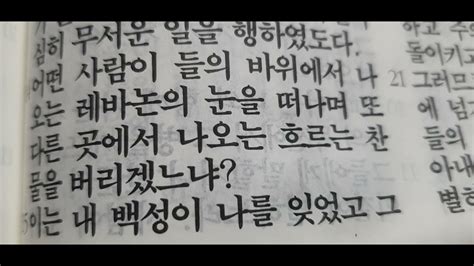 심히 무서운 일을 행하였도다.
어떤 사람이 들의 바위에서 나
오는 레바논의 눈을 떠나며 또
다른 곳에서 나오는 흐르는 찬
물을 버리겠느냐?
이는 내 백성이 나를 잊었고 그
하고
돌이키고
21 그러므
에 넘
들의
아내
별히